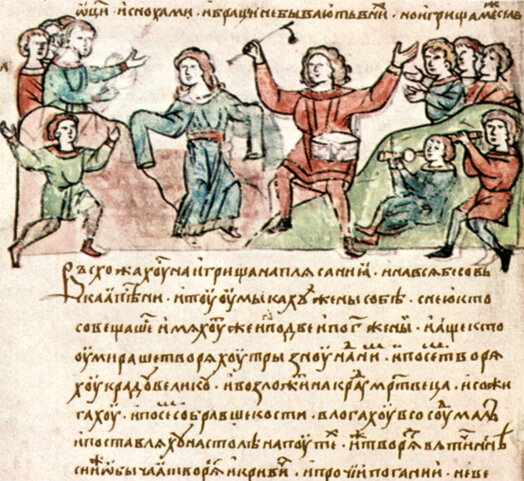 ѿци . и снохами . и браци не бываютъ в ни . но игрища ме селы
въсхожахоу на игрища на плѧсаниѧ . и на всѧ бесовь
скаа пѣни . и тоу оумыкахȣ жены собѣ . с нею кто
совещашеⷭ имѧхоу же по две и по г҃ жены . и аще кто
оумираше творѧхоу трызноу наⷣ ни . и посеⷨ творѧ
хоу крадоу великоу . и возложи на краⷣ мртвеца . и сожи
гахоу . и посеⷨ собравше кости . влогахоу в соуⷣ малъ
и поставлѧхоу на столпѣ на поутеⷯ . иж творѧⷮ вѧтичи ннѣ
сии ж обычаи творѧⷯ и кривичи . и прочии погании . не ве